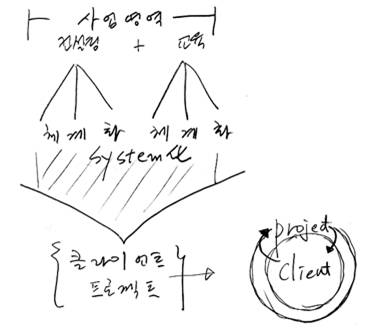 사업영역
컨설팅 + 교육
체계화 체계화
System化
클라이언트
프로젝트
project
Client